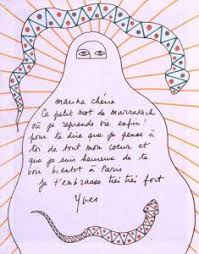 marina chérie
Ce petit mot de Marrakech
où je reprends vie enfin!
pour te dire que je pense à
toi de tout mon coeur et
que je suis heureux de te
voir bientôt à Paris
je t'embrasse très très fort
Yves